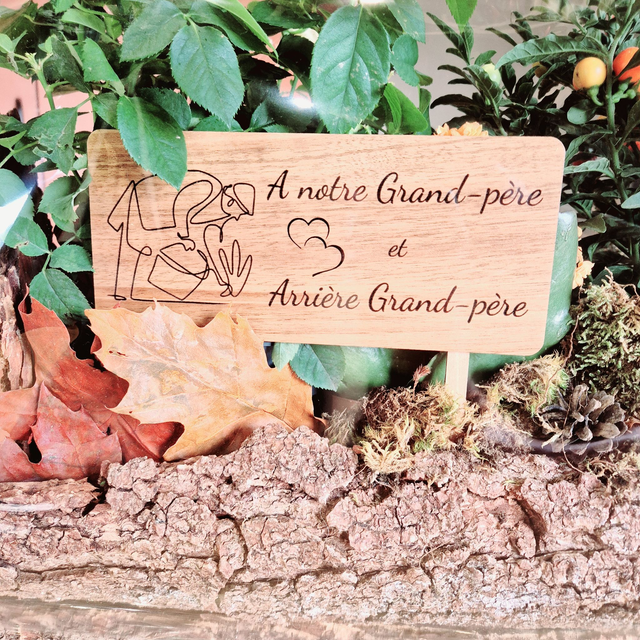 A notre Grand-père
et
Arrière Grand-père